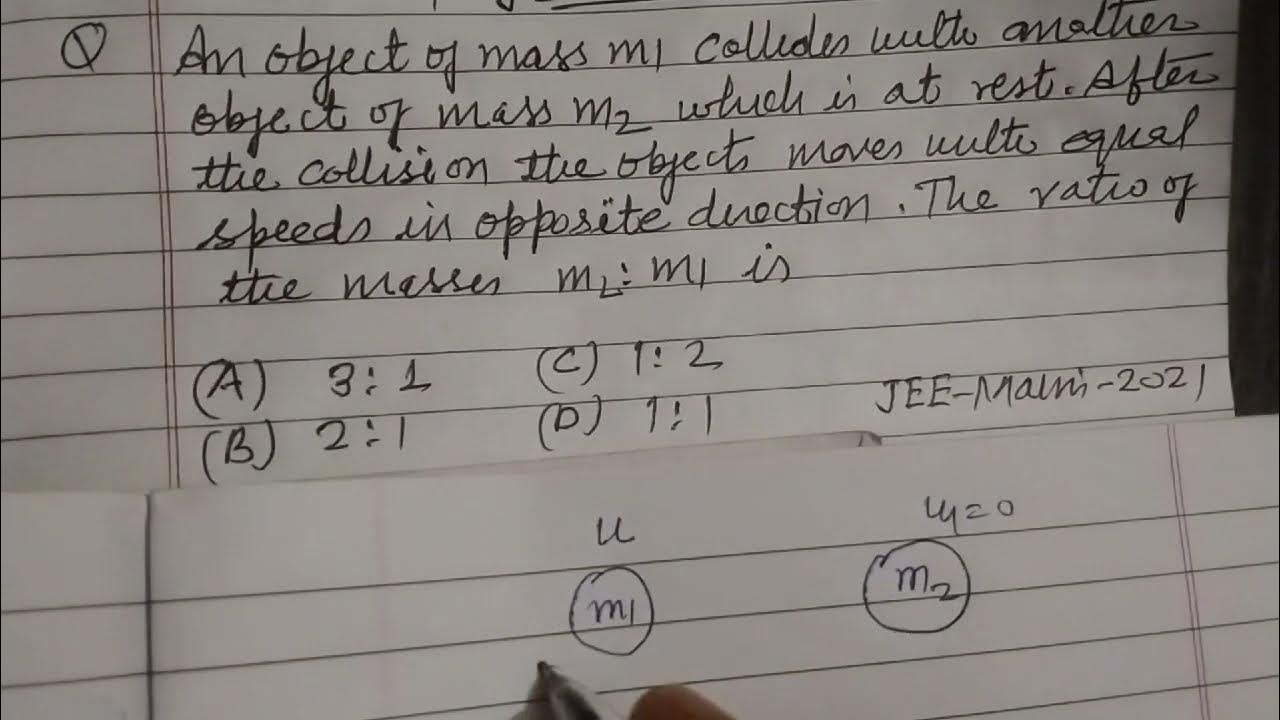 Q An object of mass m1 collides with another
object of mass m2 which is at rest. After
the collision the objects moves with equal
speeds in opposite direction. The ratio of
the masses m2:m1 is
(A) 3:1 (C) 1:2
(B) 2:1 (D) 1:1
JEE-Main-2021
u u=0
m1 m2